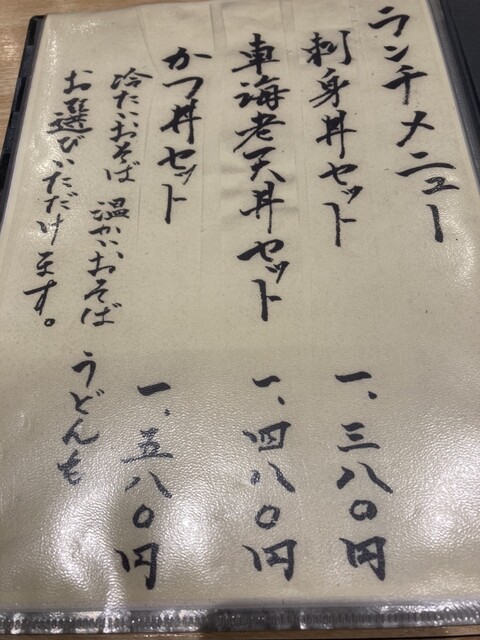 ランチメニュー
刺身丼セット 一、三八〇円
車海老天丼セット 一、四八〇円
かつ丼セット 一、五八〇円
冷たいおそば 温かいおそば うどんも
お選びいただけます。